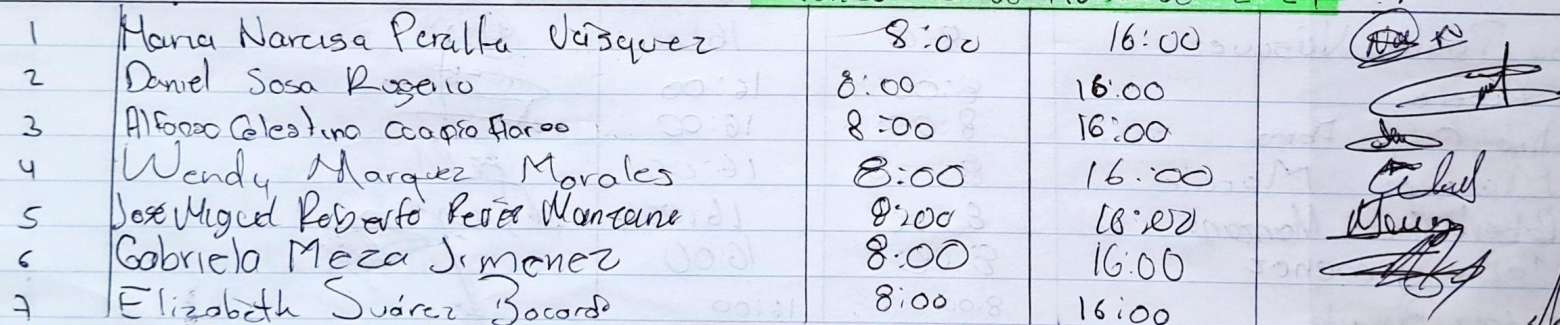 1 Maria Narcisa Peralta Vásquez 8:00 16:00
2 Daniel Sosa Rogerio 8:00 16:00
3 Alfonso Celestino 8:00 16:00
4 Wendy Marquez Morales 8:00 16:00
5 José Miguel Roberto Perez Manzano 8:00 16:00
6 Gabriela Meza Jimenez 8:00 16:00
7 Elizabeth Suárez Bocardo 8:00 16:00